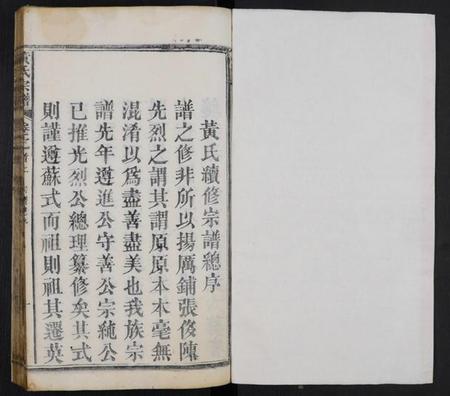 黃氏續修宗譜總序
譜之修非所以揚厲鋪張俊陳
先烈之謂其謂原原本本毫無
混淆以爲盡善盡美也我族宗
譜先年遵進公守善公宗純公
已推光烈公總理纂修矣其式
則謹遵蘇式而祖則祖其遷英
黃氏宗譜